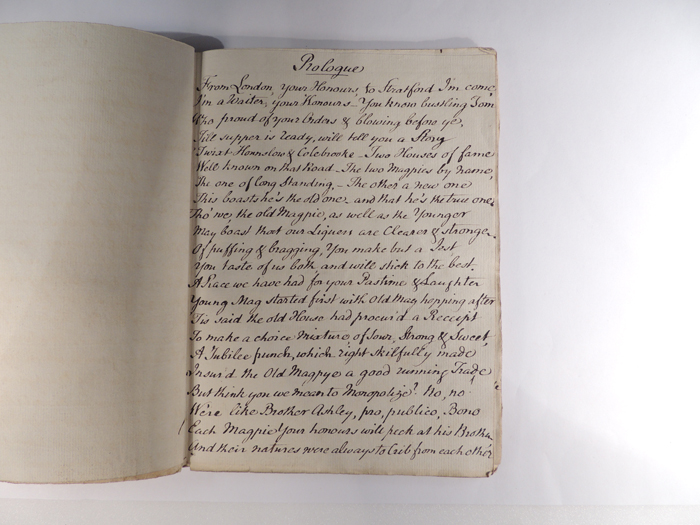 Prologue
From London, your Honours, to Stratford I'm come,
I'm a Waiter, your Honours - You know bustling Tom
Who proud of your Orders & blowing before ye,
Till supper is ready, will tell you a Story
'Twixt Hounslow & Colebrooke - Two Houses of fame
Well known on that Road - The two Magpies by name,
The one of long Standing, - The other a new one
This boasts he's the old one, and that he's the true one,
Tho' we, the old Magpie, as well as the Younger
May boast that our Liquors are Clearer & stronger
Of puffing & bragging, You make but a Jest
You taste of us both and will stick to the best.
A Race we have had for your Pastime & Laughter
Young Mag started first with Old Mag hopping after
Tis said the old House had procur'd a Receipt
To make a choice Mixture of Sour, Strong & Sweet,
A Jubilee punch, which right skilfully made
Insur'd the Old Magpye a good running Trade
But think you we mean to Monopolize? No, no
We're like Brother Ashley, pro, publico, Bono
Each Magpie Your honours will peck at his Brother
And their natures were always to Crib from each other